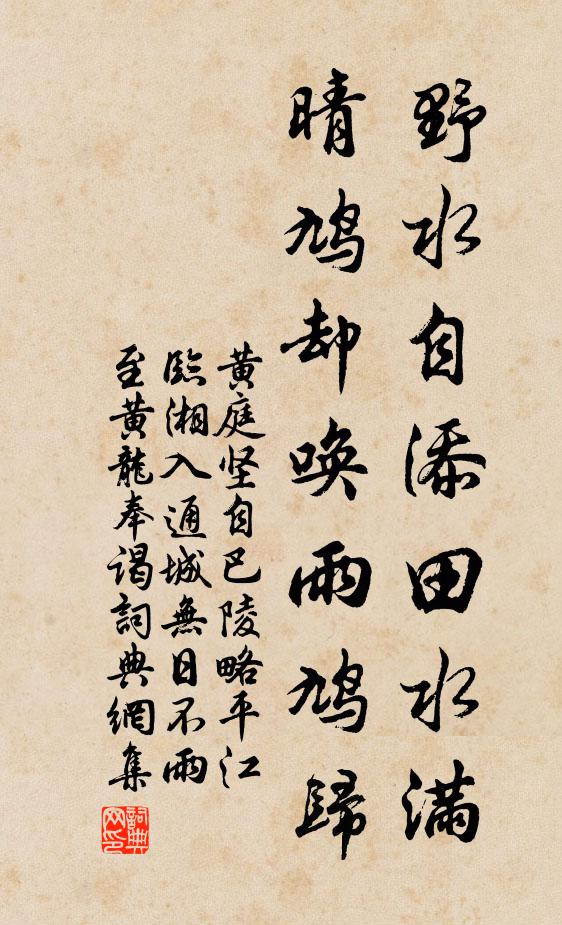 野水自添田水满
晴鸠却唤雨鸠歸
黄庭坚自巴陵略平江
臨湘入通城無日不雨
至黄龍奉谒詞典網集
詞典
网印